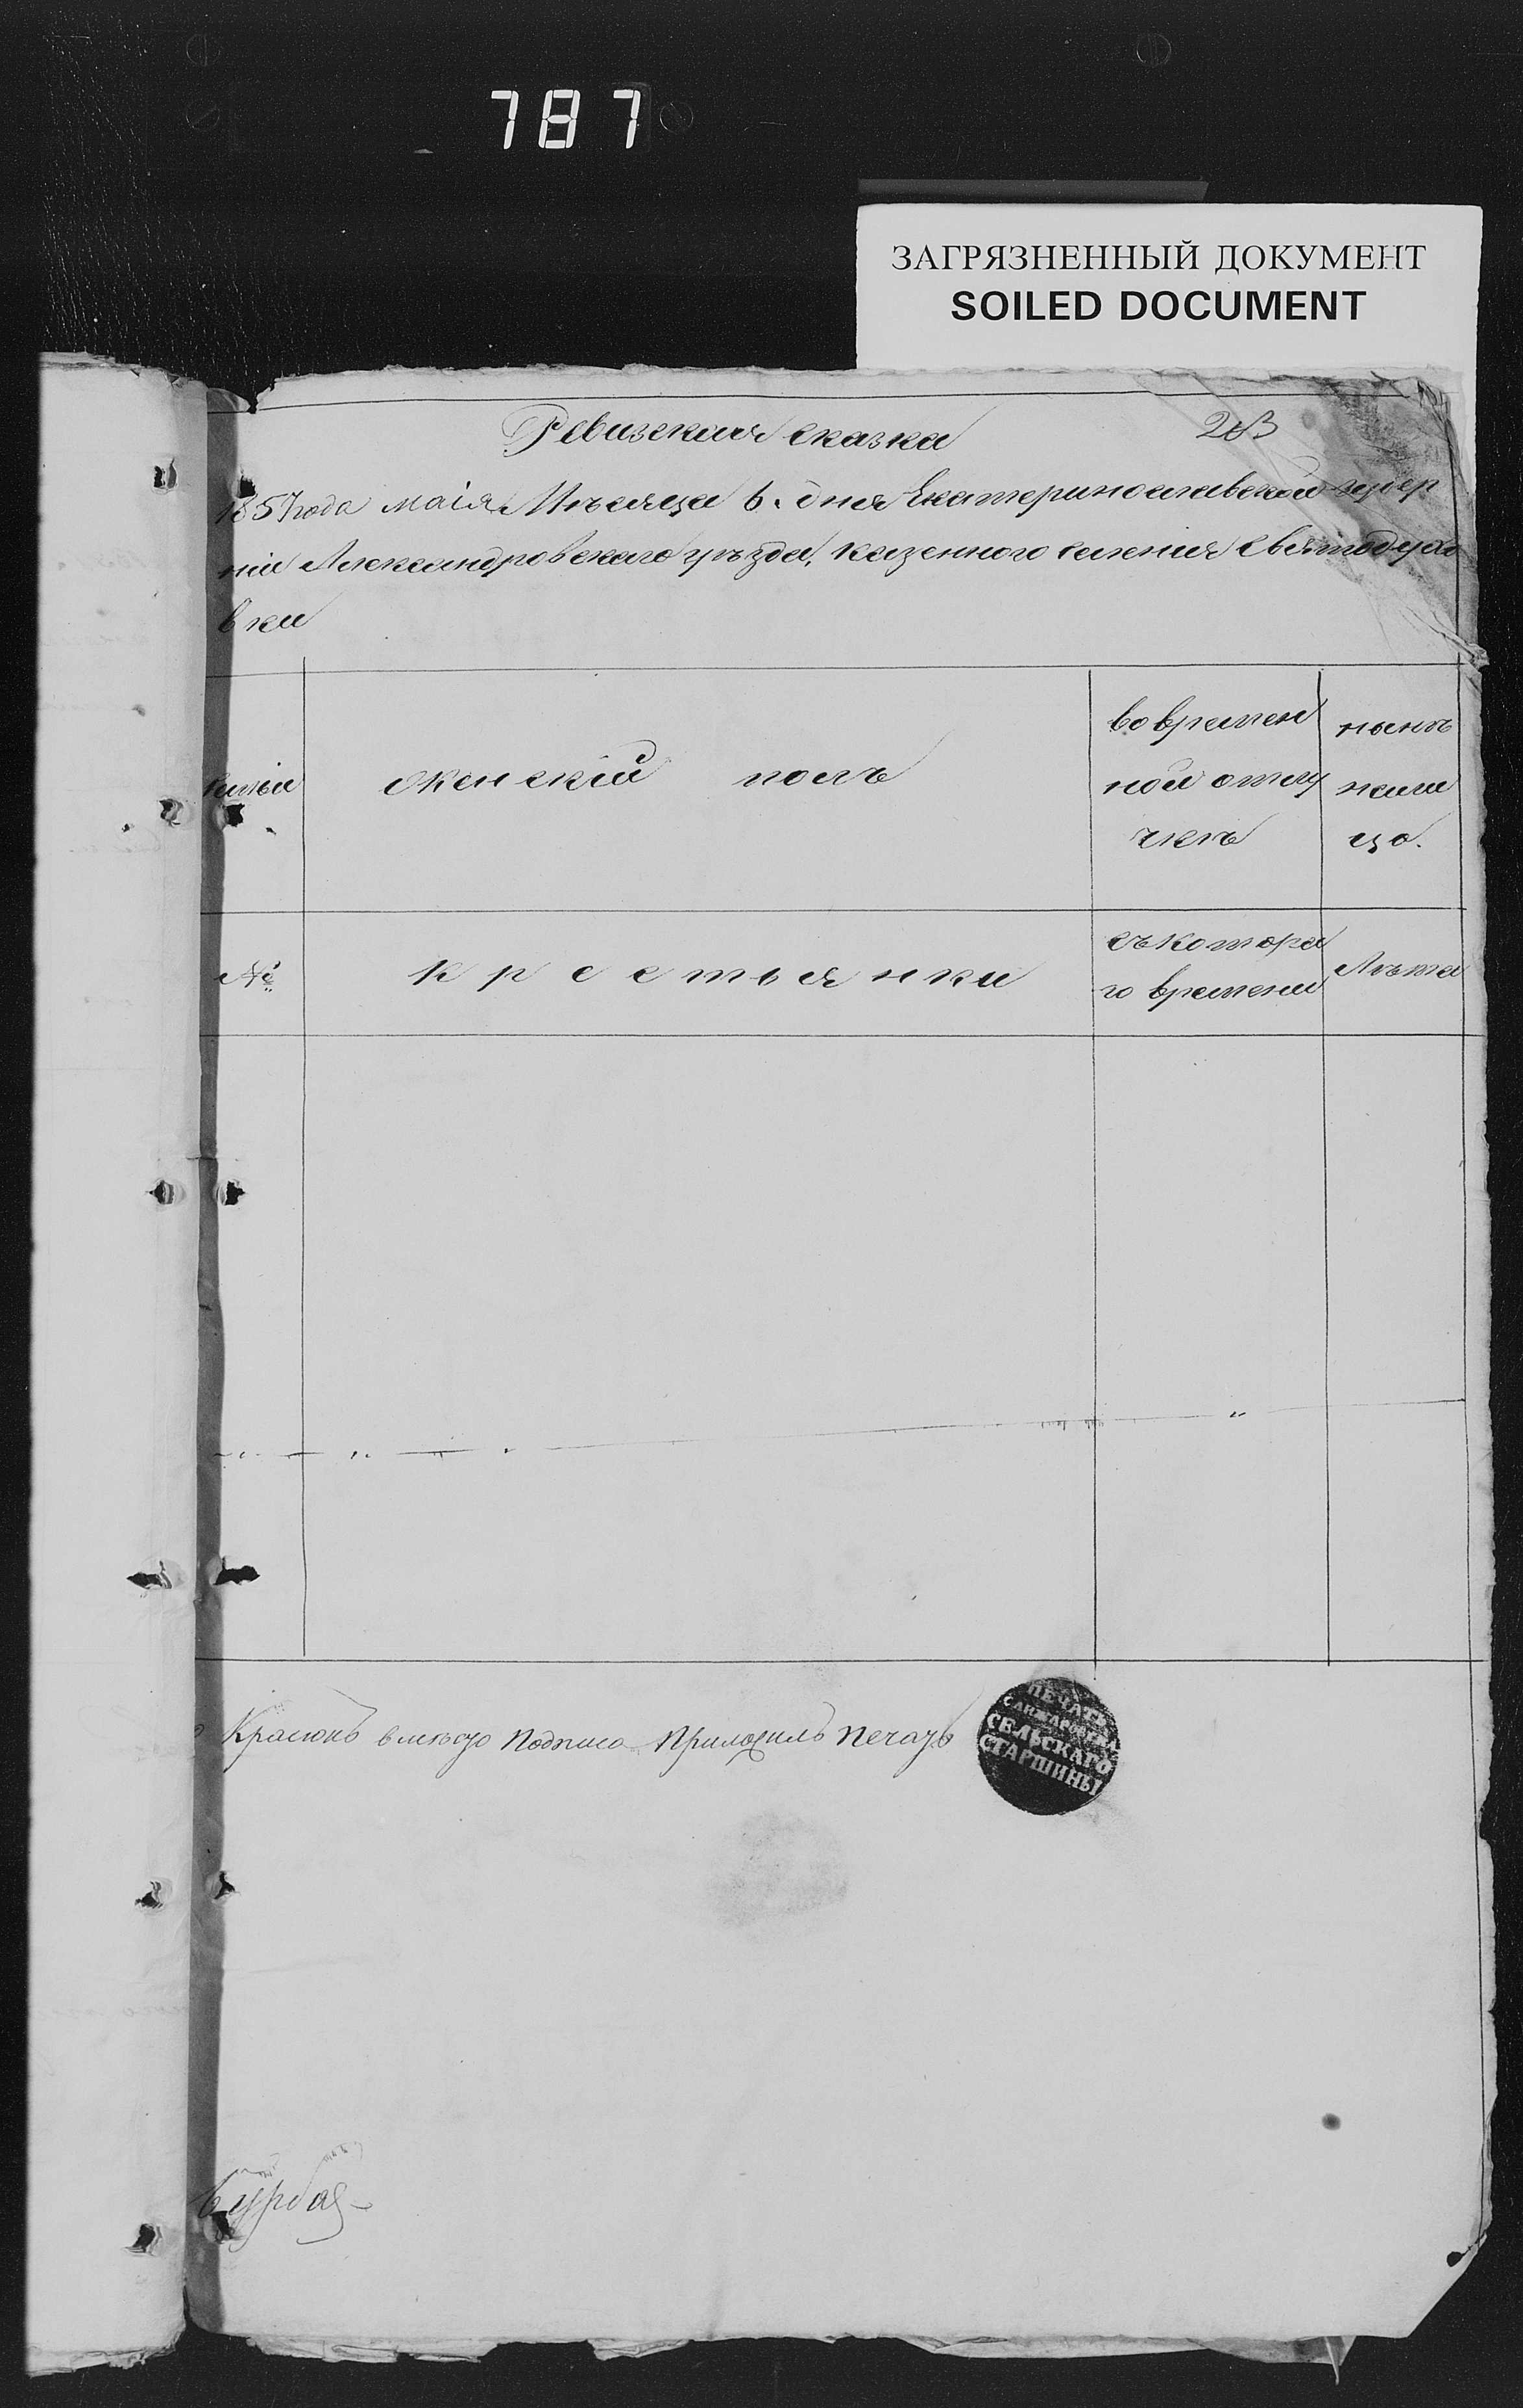 787
ЗАГРЯЗНЕННЫЙ ДОКУМЕНТ
SOILED DOCUMENT
Ревизская сказка
1857 года маія Мѣсяца 6. дня Екатеринославской губер
ніи Александровскаго уѣзда, казенного селенія Святодухо
вки
женскій полъ
во времен
ной отлу
чкѣ
нынѣ
на ли
цо.
№
крестьянки
съ котора
го времени
Лѣта
Краснокъ вместо подписа приложилъ печать
ПЕЧАТЬ
СЕЛЬСКАГО
СТАРШИНЫ